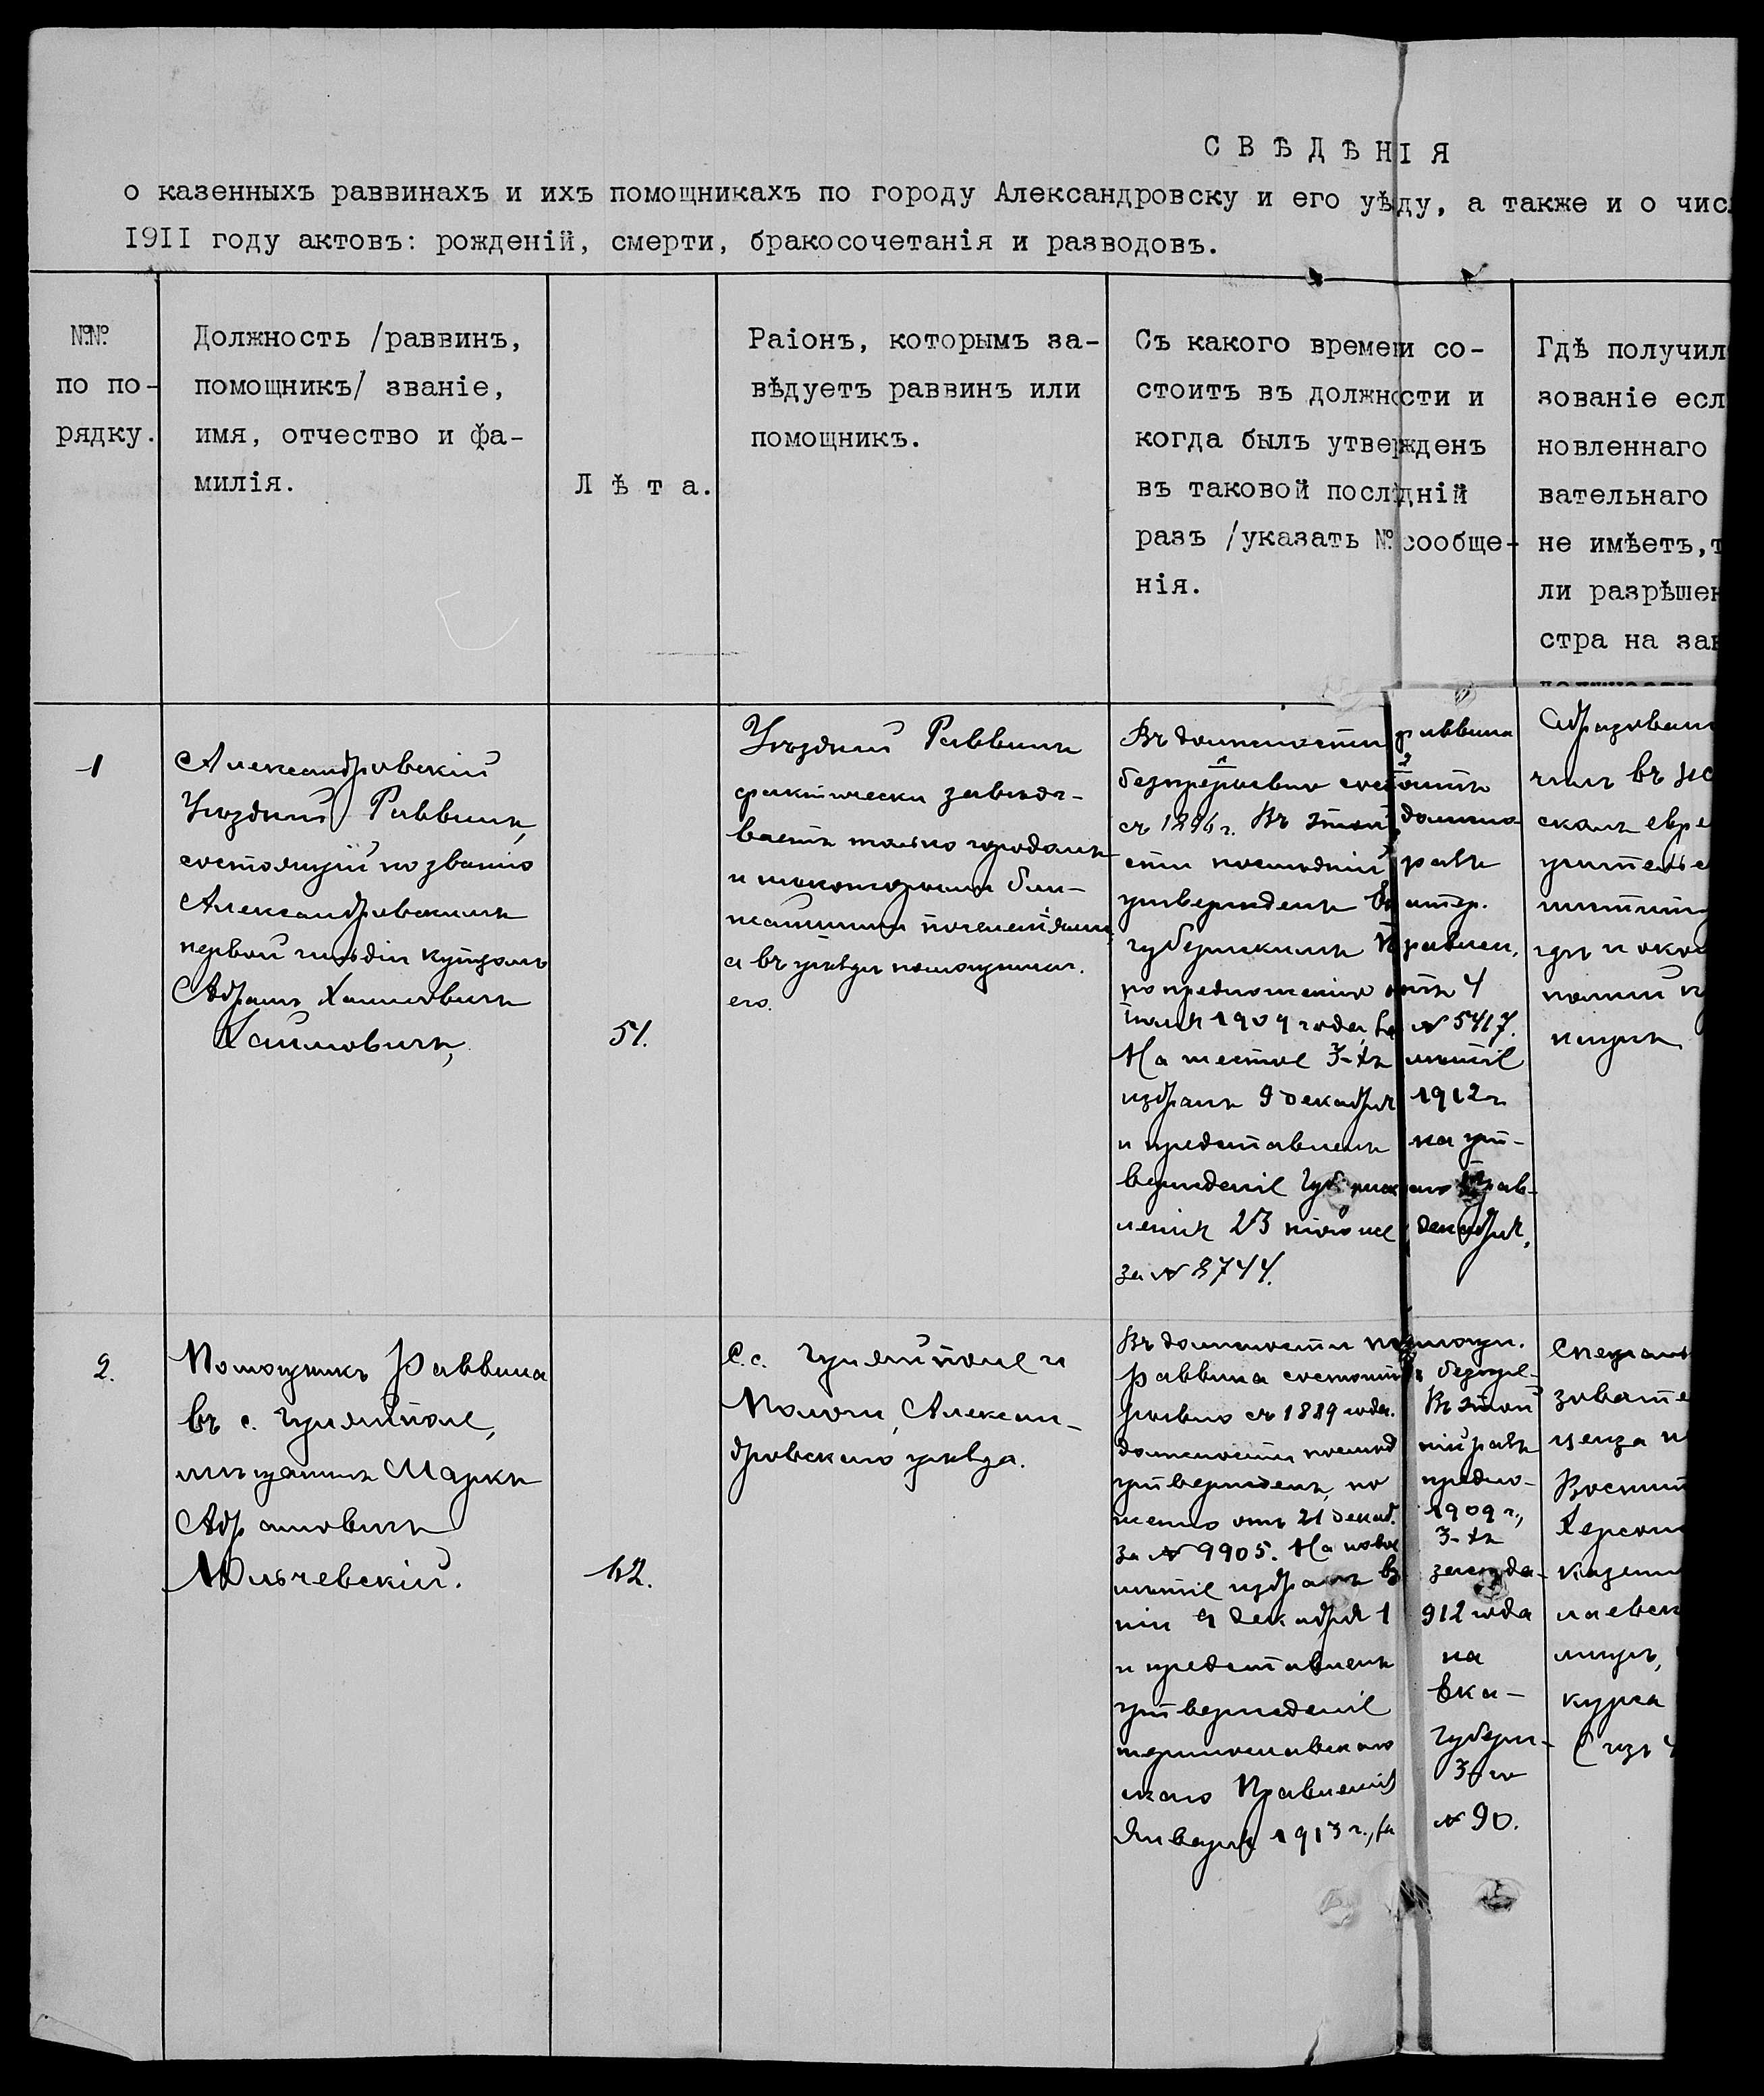 СВѢДѢНІЯ
о казенныхъ раввинахъ и ихъ помощникахъ по городу Александровску и его уѣду, а также и о чис
1911 году актовъ: рожденій, смерти, бракосочетанія и разводовъ.
№№
по по-
рядку.
Должность /раввинъ,
помощникъ/ званіе,
имя, отчество и фа-
милія.
Лѣта.
Раіонъ, которымъ за-
вѣдуетъ раввинъ или
помощникъ.
Съ какого времени со-
стоитъ въ должности и
когда былъ утвержденъ
въ таковой послѣдній
разъ /указать № сообще-
нія.
Гдѣ получил
зованіе есл
новленнаго
вательнаго
не имѣетъ, т
ли разрѣшен
стра на зан
1
Александровскій
Уѣздный Раввинъ,
состоящій по званію
Александровскимъ
первой гильдіи купцомъ
Абрамъ Хаимовичъ
Хаимовичъ,
51.
Уѣздный Раввинъ
фактически завѣды-
ваетъ только городомъ
и нѣкоторыми бли-
жайшими поселеніями,
а въ уѣздѣ помощники
его.
Въ должности раввина
безпрерывно состоитъ
съ 1896 г. Въ этой должно-
сти послѣдній разъ
утвержденъ
губернскимъ Правлен.
по предложенію отъ 4
1909 года, за № 5417.
На шестое 3-хъ лѣтіе
избранъ 9 декабря 1912 г
и представленъ на ут-
вержденіе Губернскаго Прав-
ленія 23 того же декабря,
за № 8744.
Образован
чилъ въ
скомъ евре
учительс
институ
гдѣ и око
полный
2.
Помощникъ Раввина
въ с. Гуляйполе,
мѣщанинъ Маркъ
Абрамовичъ
62.
С.с. Гуляйполе и
Пологи, Алексан-
дровскаго уѣзда.
Въ должности помощн.
раввина состоитъ безпре-
рывно съ 1889 года. Въ этой
должности послѣдній разъ
утвержденъ, по предло-
женію отъ 21 декаб. 1909 г.,
за № 9905. На новое 3-хъ
лѣтіе избранъ въ засѣда-
ніи 9 декабря 1912 года
и представленъ на
утвержденіе Ека-
теринославскаго Губерн-
скаго Правленія 3-го
Января 1913 г., за № 90.
Спеціаль
зовате
ценза н
Воспит
Херсон
казенн
лаевск
курса